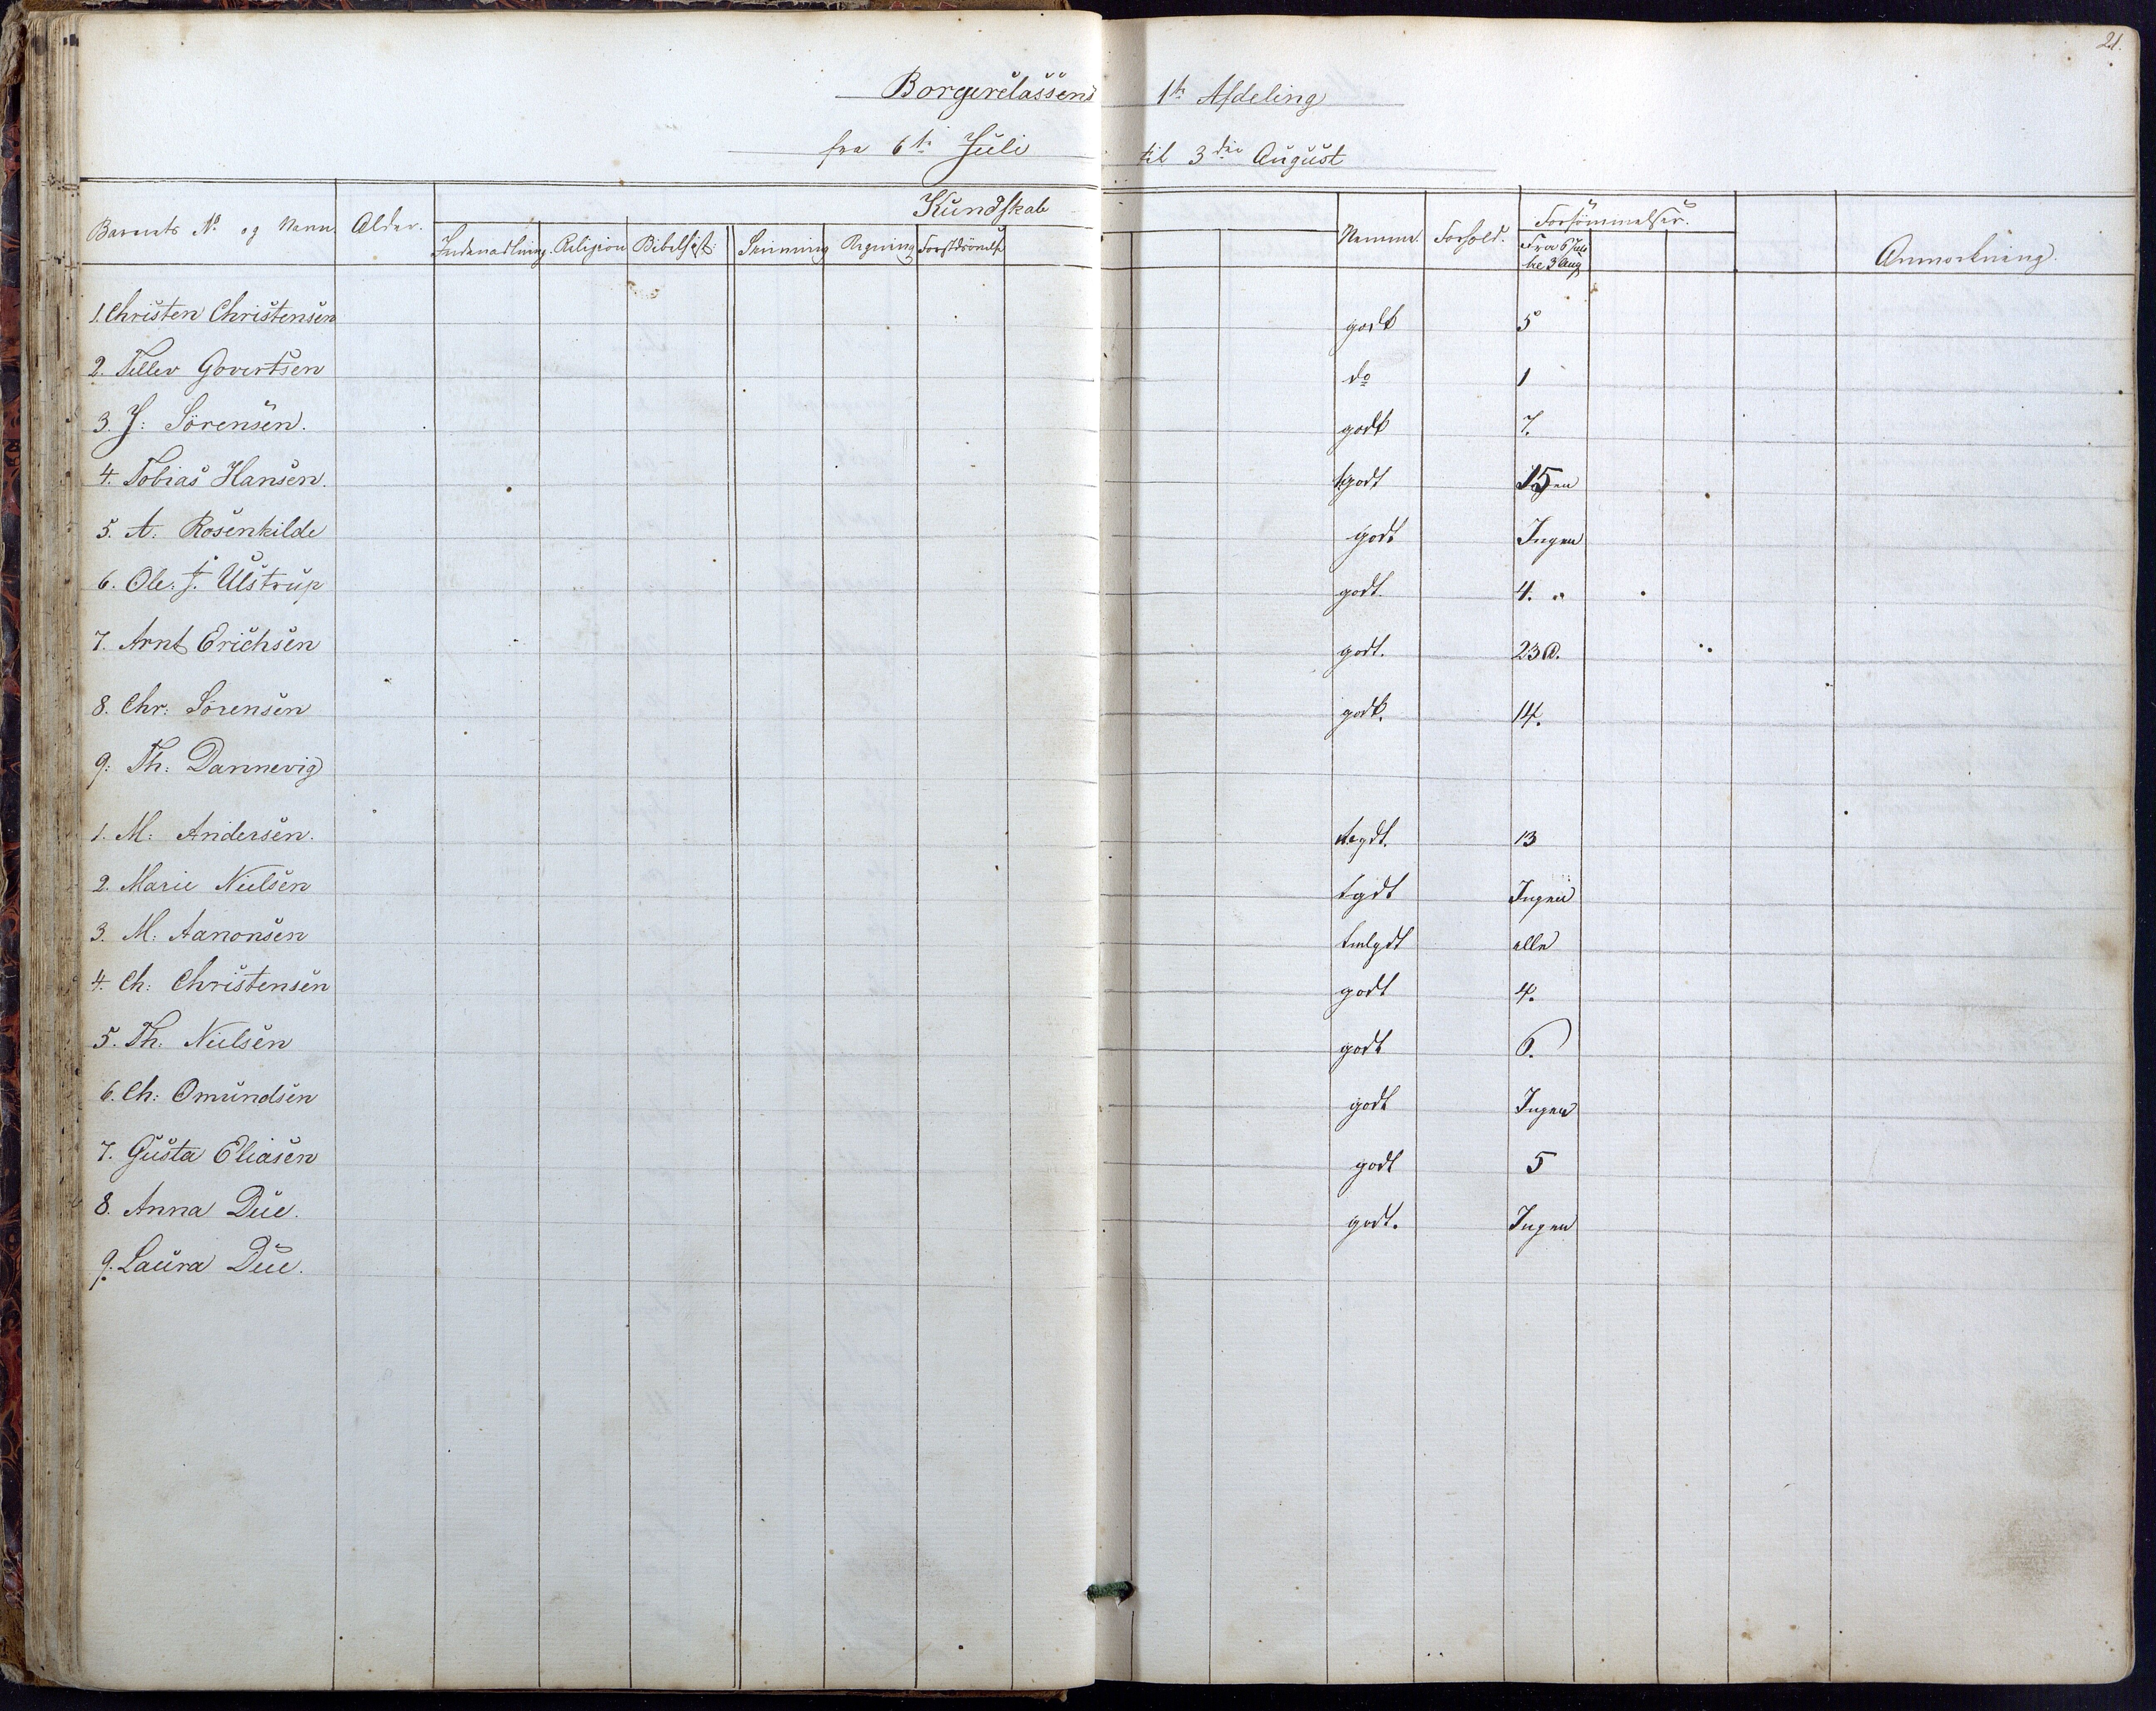 21.
Borgerclassens 1te Afdeling
fra 6te Juli til 3die August
Barnets No og Navn. Alder. Kundskab Nemme. Forhold. Forsömmelser. Anmærkning.
Indenadlæsning. Religion Bibelhist: Skrivning Regning Forstdsövelse Fra 6 Juli
til 3 Aug
1. Christen Christensen godt 5
2. Tellev Govertsen do 1
3. J: Sörensen. godt 7.
4. Tobias Hansen. tgodt 15
5. A. Rosenkilde godt Ingen
6. Ole. J. Ulstrup godt. 4.
7. Arnt Erichsen godt. 23
8. Chr: Sörensen godt. 14.
9: Th: Dannevig
1. M: Andersen. tgdt. 13
2. Marie Nielsen tgdt Ingen
3. M. Aanonsen tmlgdt alle
4. Ch: Christensen godt 4.
5. Th: Nielsen godt 6.
6. Ch: Omundsen godt Ingen
7. Gusta Eliasen godt 5
8. Anna Due. godt. Ingen
9. Laura Due.